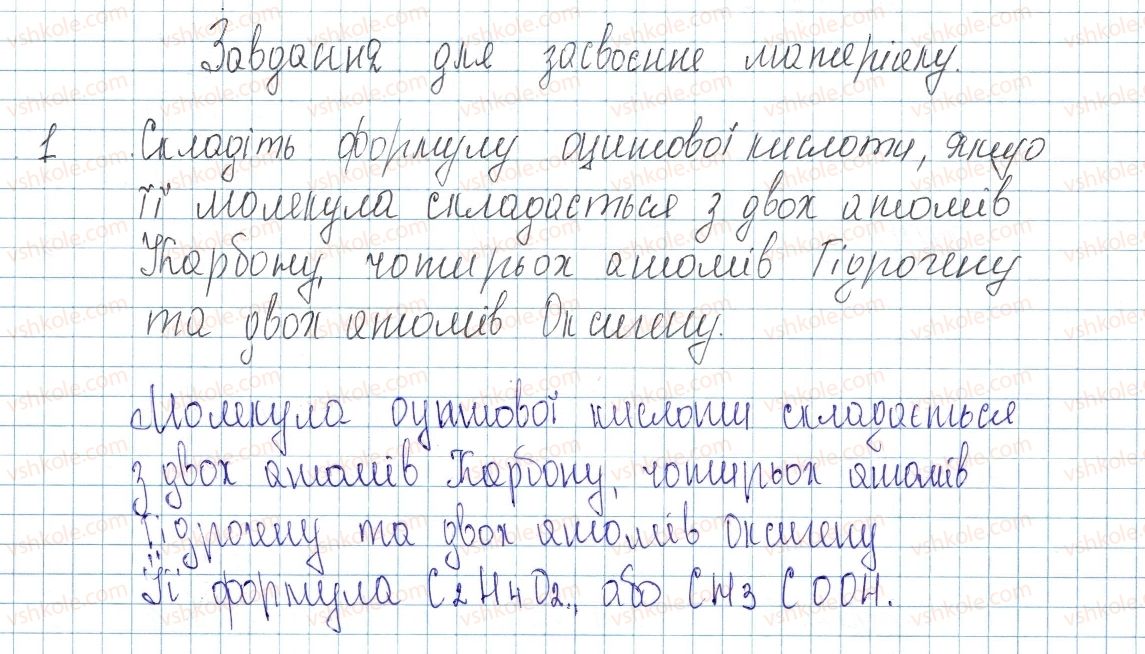 Завдання для засвоєння матеріалу.
1 Складіть формулу оцтової кислоти, якщо
її молекула складається з двох атомів
Карбону, чотирьох атомів Гідрогену
та двох атомів Оксигену.
Молекула оцтової кислоти складається
з двох атомів Карбону, чотирьох атомів
Гідрогену та двох атомів Оксигену
Її формула C2H4O2, або CH3COOH.